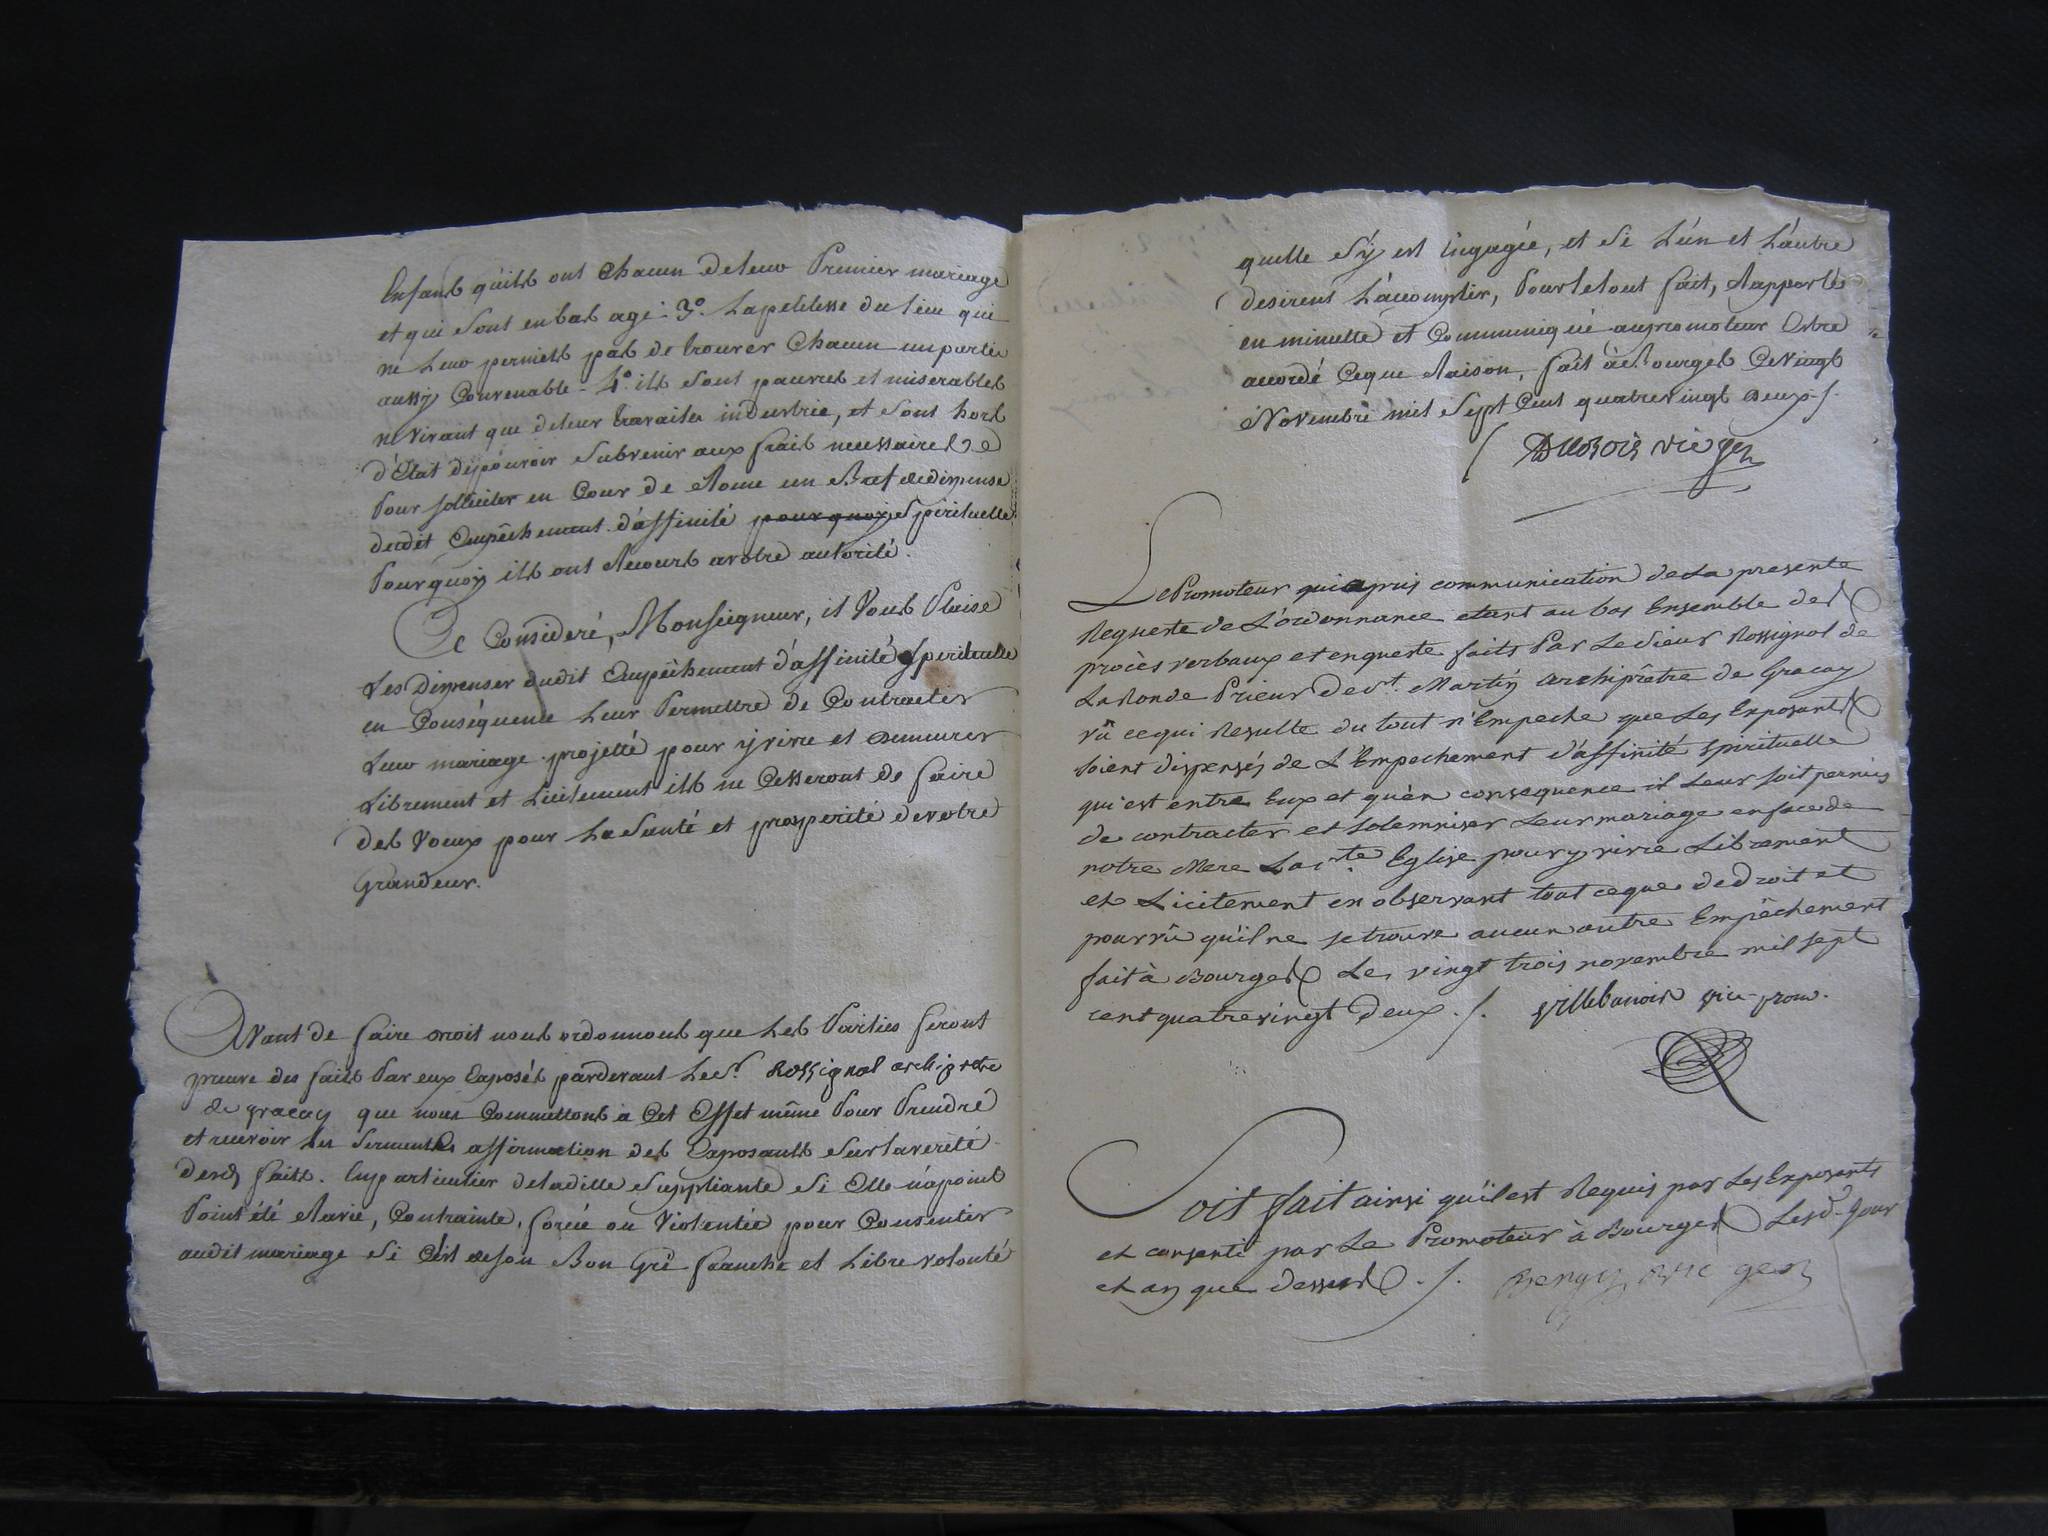 Enfans qu'ils ont chacun de leur Premier mariage
et qui sont en bas age. 3º. La petitesse du lieu qui
ne leur permets pas de trouver chacun un partie
aussy convenable - 4º. ils sont pauvres et miserables
ne vivant que de leur travail et industrie, et sont hors
d'Etat de pouvoir subvenir aux frais necessaires
Pour solliciter en Cour de Rome un Bref de dispense
dudit Empêchement d'affinité pour quoy spirituelle
Pourquoy ils ont Recours a votre autorité.
Ce Consideré, Monseigneur, il Vous Plaise
Les Dispenser dudit Empêchement d'affinité spirituelle
en Conséquence Leur Permettre de Contracter
Leur mariage projetté pour y vivre et Demeurer
Librement et Licitement ils ne Cesseront de faire
des Voeux pour La Santé et prosperité de votre
Grandeur.
Avant de faire droit nous ordonnons que Les Parties feront
preuve des faits Par eux Exposés pardevant Le Sr. Rossignol archiprêtre
de graçay que nous Commettons à Cet Effet même Pour Prendre
et recevoir les serments affirmation des Exposants sur la verité
desd. faits. En particulier de la ditte Suppliante si Elle n'a point
Point été Ravie, Contrainte, forcée ou Violentée pour Consentir
audit mariage si C'est de son Bon Gré franche et Libre volonté
quelle s'y est Engagée, et si L'un et L'autre
desirent L'accomplir, Pour le tout fait, Rapporté
en minutte et Communiqué au promoteur Estre
accordé Ce que Raison, fait à Bourges Ce Vingt
Novembre mil Sept Cent quatre vingt Deux./.
Dubois vic gen
Le Promoteur qui a pris communication de La presente
Requeste de L'ordonnance etant au bas Ensemble des
procès verbaux et enqueste faits Par Le Sieur Rossignol de
La Ronde Prieur de St. Martin archiprêtre de Graçay
vû ce qui Resulte du tout n'Empeche que Les Exposants
soient dispensés de L'Empechement d'affinité spirituelle
qui est entre Eux et qu'en consequence il Leur soit permis
de contracter et solemniser Leur mariage en face de
notre Mere La Ste. Eglise pour y vivre Librement
et Licitement en observant tout ce que de Droit et
pourvû qu'il ne se trouve aucun autre Empêchement
fait à Bourges Le vingt trois novembre mil sept
cent quatre vingt Deux./. Villebanois vice-prom.
Soit fait ainsi qu'il est Requis par Les Exposants
et consenti par Le Promoteur à Bourges Lesd. Jour
et an que dessus./. Bengy vic gen